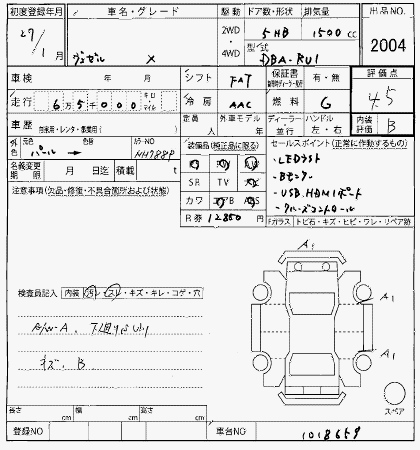 初度登録年月 車名・グレード 駆動 ドア数・形状 排気量 出品NO.
27/1 ヴェゼル X 2WD・4WD 5HB 1500cc 2004
型式 DBA-RU1
車検 年 月 シフト FAT 保証書 有・無 評価点
走行 6万5千000 キロ マイル 冷房 AAC 燃料 G 4.5
車歴 自家用・レンタ・事業用( ) 定員 人 外車モデル 年 ディーラー・並行 ハンドル 左・右 内装評価 B
外色 元色 パール 色替 カラーNO NH788P
装備品(純正品に限る) セールスポイント(正常に作動するもの)
名義変更期限 月 日迄 積載 t
SR TV
カワ エアB ABS
R券 12850 円
・LEDライト
・Bモニター
・USB.HDMIポート
・クルーズコントロール
注意事項(欠品・修復・不具合箇所および状態)
Fガラス トビ石・キズ・ヒビ・ワレ・リペア跡
検査員記入 内装 汚レ・スレ・キズ・キレ・コゲ・穴
A/W-A、下廻りサビ
キズ、B
A1
A1
A1
スペア
長さ cm 幅 cm 高さ cm
登録NO 車台NO 1018659